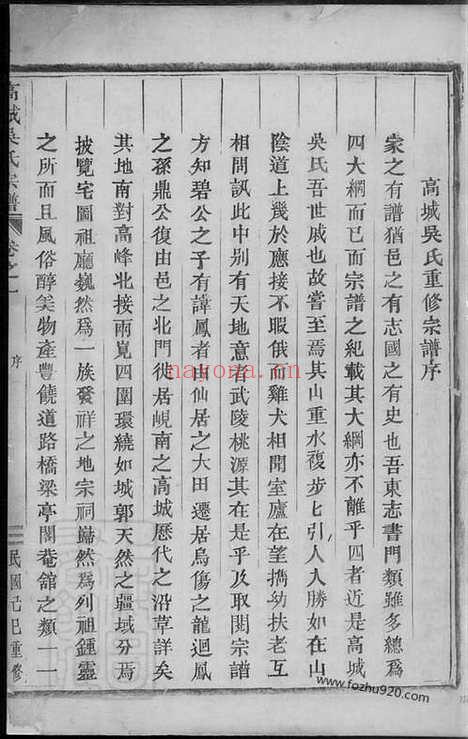 高城吳氏重修宗譜序
家之有譜猶邑之有志國之有史也吾東志書門類雖多總爲
四大綱而已而宗譜之紀載其大綱亦不離乎四者近是高城
吳氏吾世戚也故嘗至焉其山重水複步步引人入勝如在山
陰道上幾於應接不暇俄而雞犬相聞室廬在望攜幼扶老互
相問訊此中別有天地意者武陵桃源其在是乎及取閱宗譜
方知碧公之子有諱鳳者由仙居之大田遷居烏傷之龍迴鳳
之孫鼎公復由邑之北門徙居峴南之高城歷代之沿革詳矣
其地南對高峰北接兩峴四圍環繞如城郭天然之疆域分焉
披覽宅圖祖廳巍然爲一族發祥之地宗祠巋然爲列祖鍾靈
之所而且風俗醇美物產豐饒道路橋梁亭閣菴舘之類一一
高城吳氏宗譜
卷之一
序
民國己巳重修
nayona.cn
www.fozhu920.com